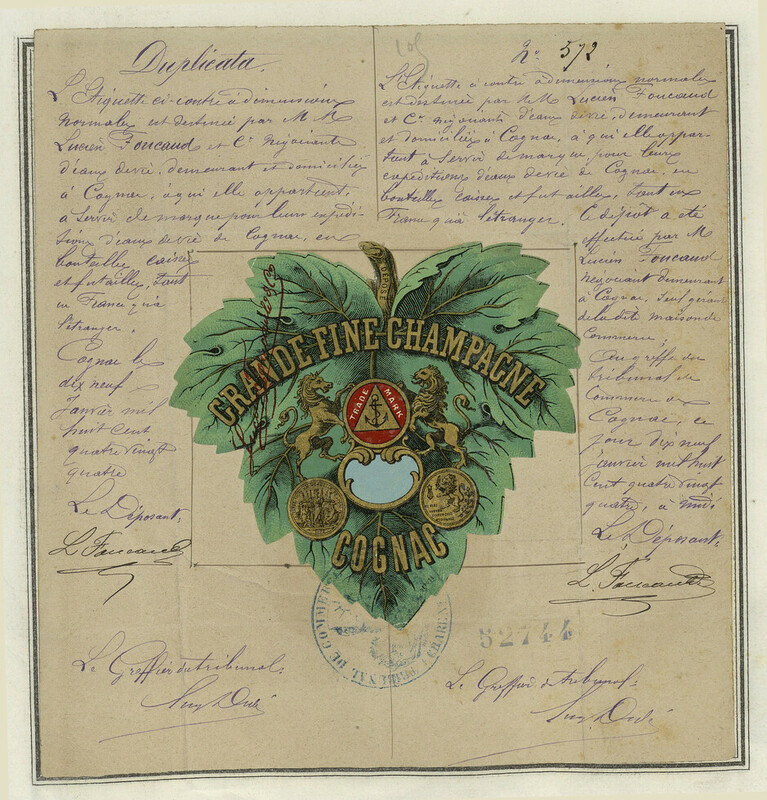 Duplicata.
L'Etiquette ci-contre à dimensions
normales est destinée par M M
Lucien Foucaud et Cie Négociants
d'eaux de vie, demeurant et domiciliés
à Cognac, à qui elle appartient,
à servir de marque pour leurs expédi-
tions d'eaux de vie de Cognac, en
bouteilles, caisses
et futailles, tant
en France qu'à
l'étranger.
Cognac le
dix neuf
Janvier mil
huit cent
quatre vingt
quatre
Le Déposant:
L. Foucaud
Le Greffier du tribunal:
105
No 572
L'Etiquette ci contre à dimensions normales
est destinée par M M. Lucien Foucaud
et Cie négociants d'eaux de vie, demeurant
et domiciliés à Cognac, à qui elle appar-
tient à servir de marque pour leurs
expéditions d'eaux de vie de Cognac, en
bouteilles caisses et futailles, tant en
France qu'à l'étranger.
Le dépôt a été
effectué par M
Lucien Foucaud
négociant demeurant
à Cognac, seul gérant
de la dite maison de
Commerce;
Au greffe du
tribunal de
Commerce de
Cognac, ce
jour dix neuf
janvier mil huit
cent quatre vingt
quatre, à midi
Le Déposant:
L. Foucaud
Le Greffier du tribunal:
DÉPOSÉ
GRANDE FINE CHAMPAGNE
TRADE MARK
COGNAC
TRIBUNAL DE COMMERCE
52744